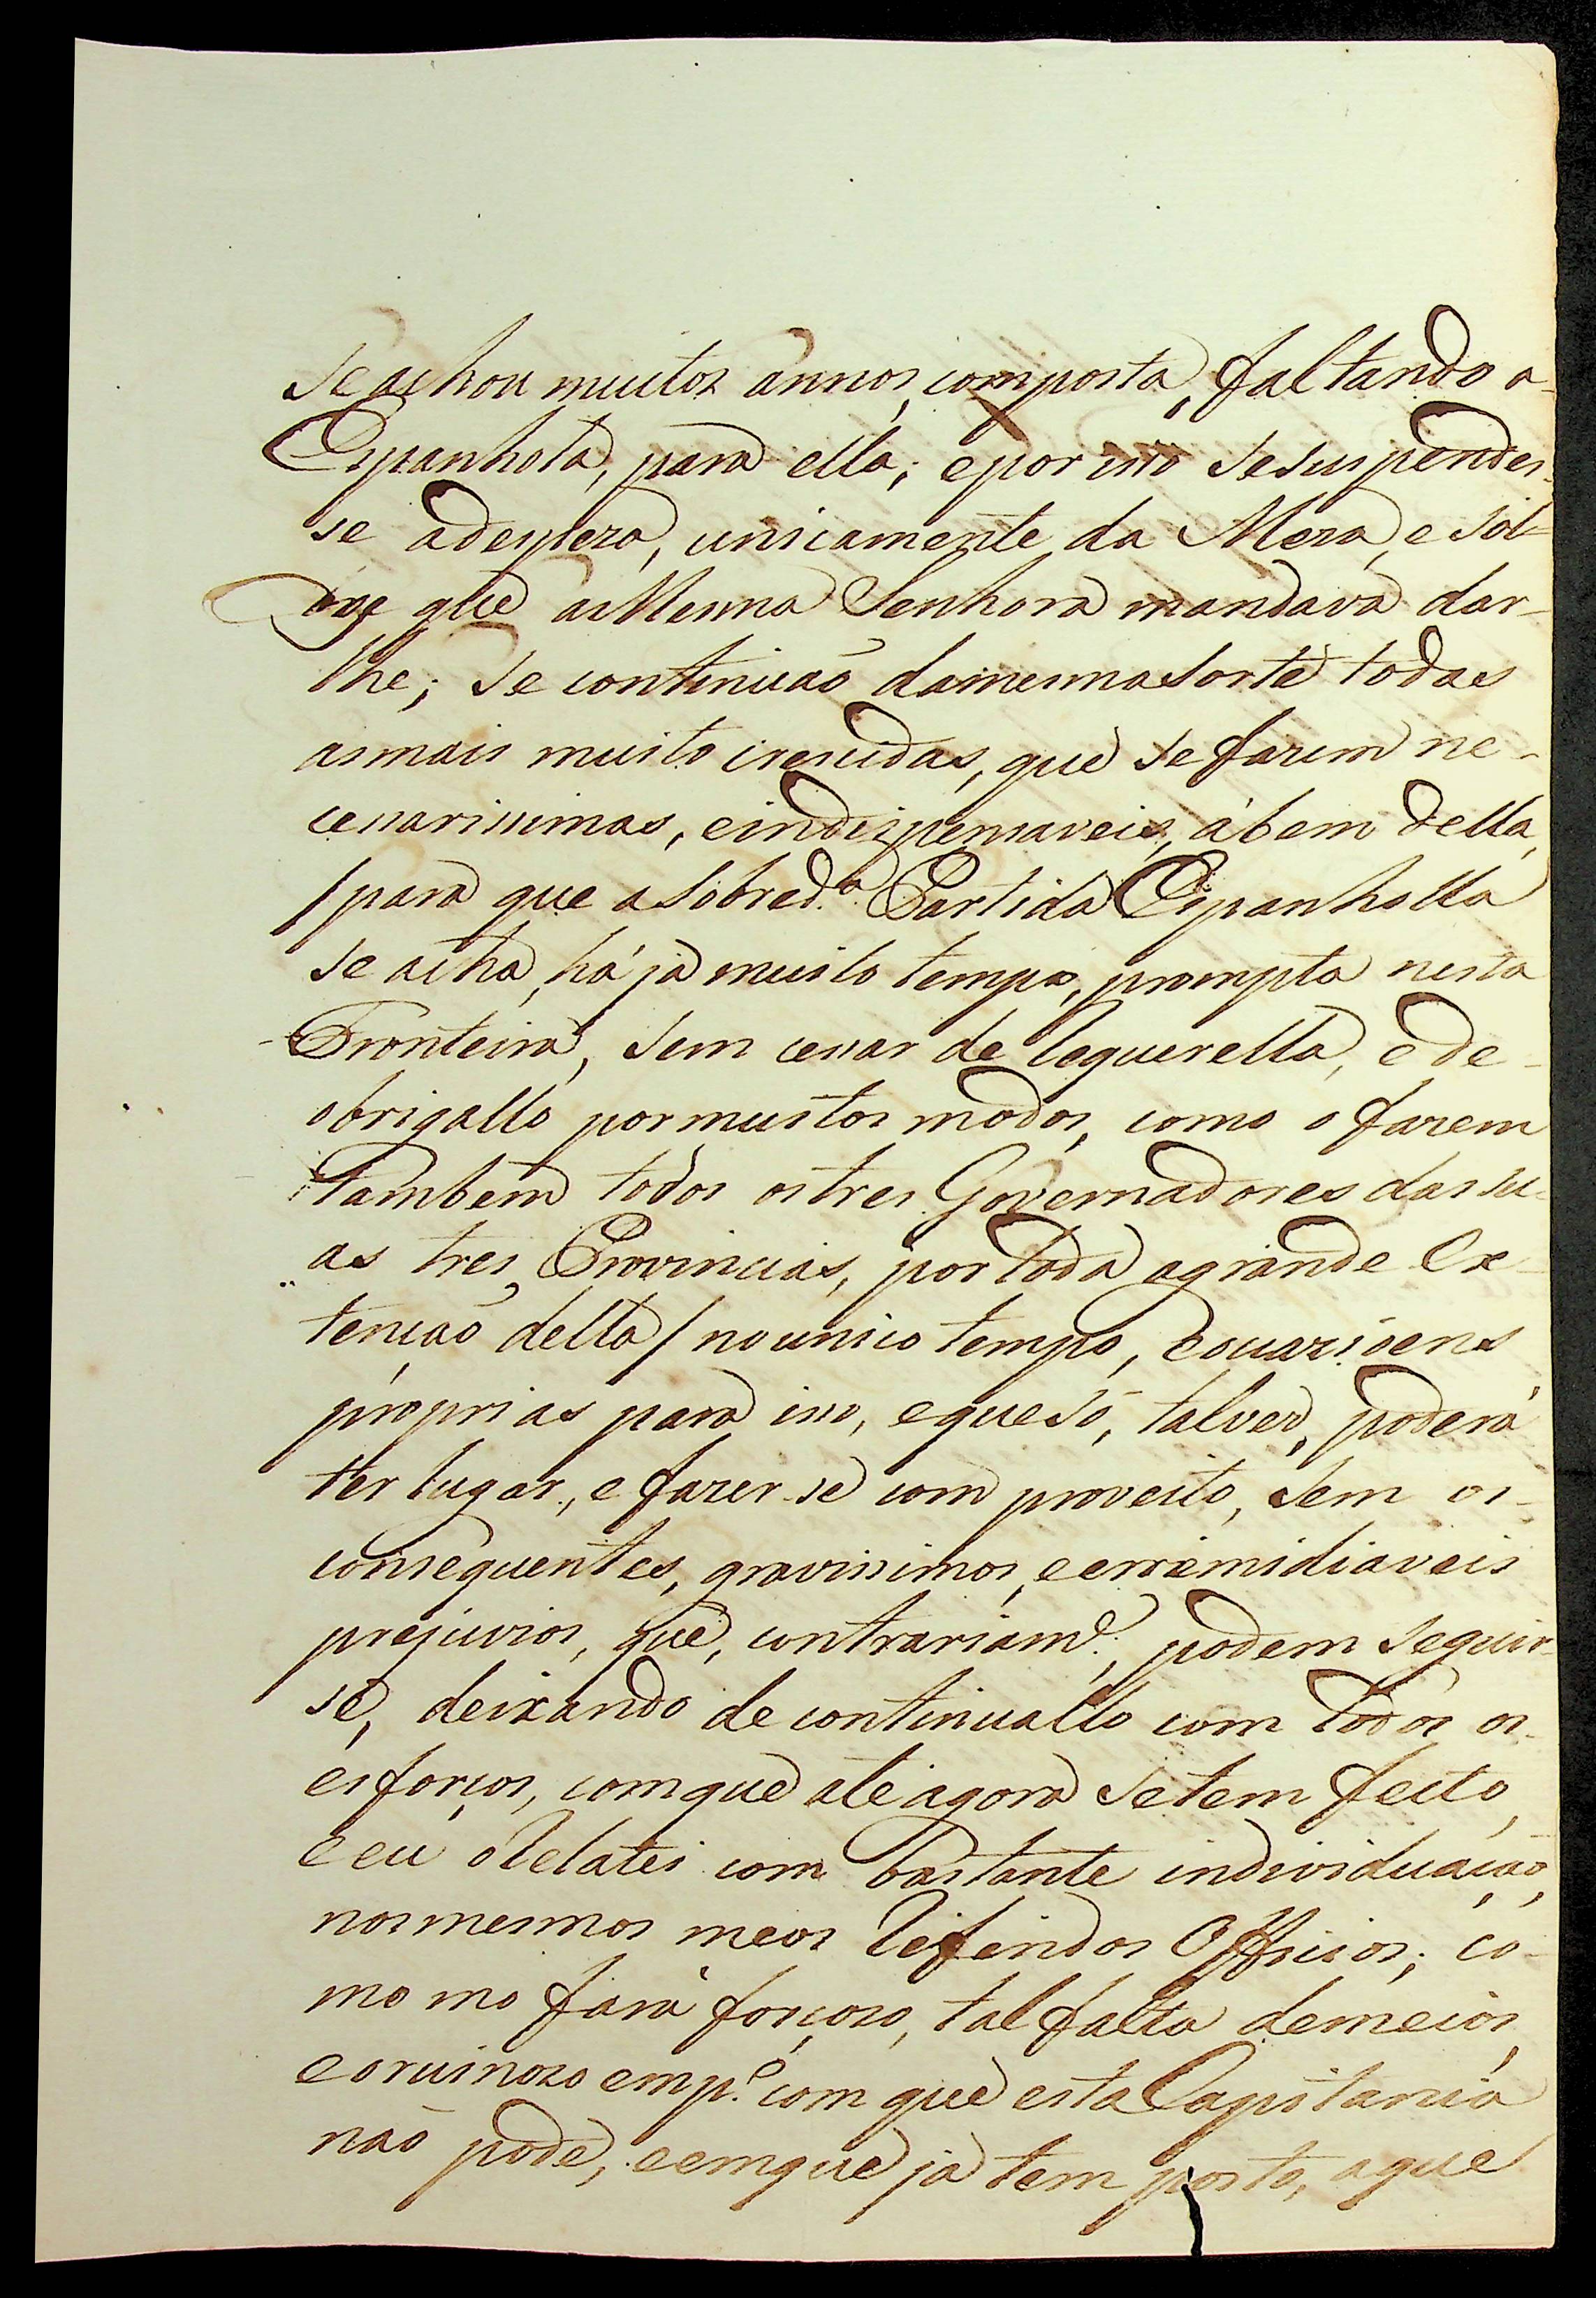 se achou muitos annos, composta, faltando a
Espanhola, para ella; e por isso se suspendes-
se a despeza, unicamente da Meza, e sol-
dos que a Mesma Senhora mandava dar-
lhe; se continuaõ da mesma sorte todas
as mais muito crescidas, que se fazem ne-
cessarissimas, e indispensaveis, á bem della,
/para que a sobred.ª Partida Espanholla
se acha, há já muito tempo, prompta nesta
Fronteira, sem cessar de requerella, e de
obrigallo por muitos modos, como o fazem
tambem todos os tres Governadores das su-
as tres Provincias, por toda a grande ex-
tençaõ della/ no unico tempo, e ouazioens
proprias para isso, e que só, talvez, poderá
ter lugar, e fazer-se com proveito, sem os
consequentes, gravissimos, e erremidiaveis
prejuizos, que, contrariam.e, podem seguir-
se, deixando de continuallo com todos os
esforços, com que até agora se tem feito,
e eu o relatei com bastante individuaçaõ,
nos mesmos meos referidos Officios; co-
mo mo fará forçozo, tal falta de meios,
e o ruinozo emp.º com que esta Capitania
naõ pode, e em que já tem posto, a que